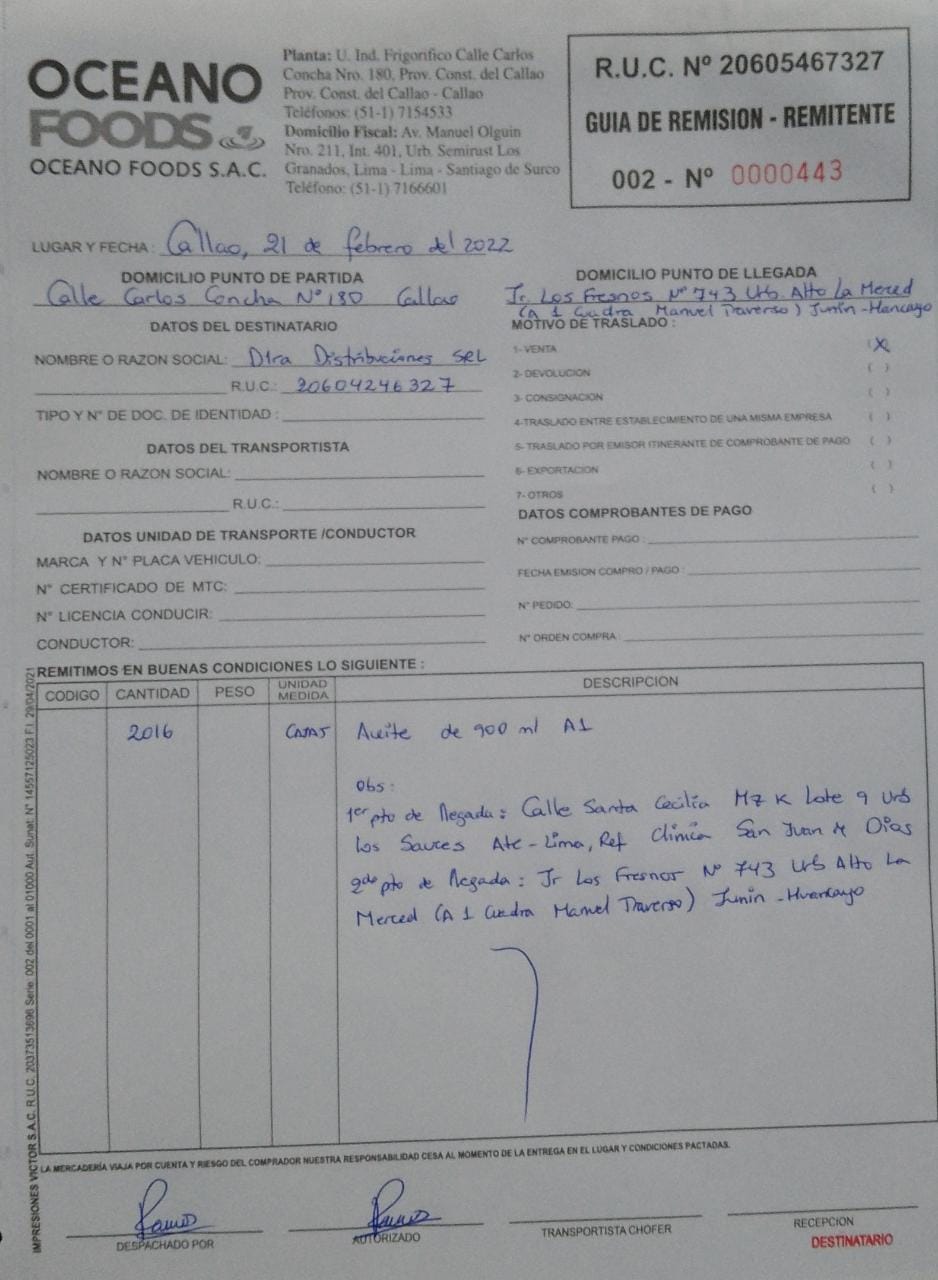 OCEANO
FOODS
OCEANO FOODS S.A.C.
Planta: U. Ind. Frigorifico Calle Carlos
Concha Nro. 180, Prov. Const. del Callao
Prov. Const. del Callao - Callao
Teléfonos: (51-1) 7154533
Domicilio Fiscal: Av. Manuel Olguin
Nro. 211, Int. 401, Urb. Semirust Los
Granados, Lima - Lima - Santiago de Surco
Teléfono: (51-1) 7166601
R.U.C. Nº 20605467327
GUIA DE REMISION - REMITENTE
002 - Nº 0000443
LUGAR Y FECHA: Callao, 21 de febrero del 2022
DOMICILIO PUNTO DE PARTIDA
Calle Carlos Concha Nº 180 Callao
DOMICILIO PUNTO DE LLEGADA
Jr. Los Fresnos Nº 743 Urb. Alto La Merced
(A 1 Cuadra Manuel Traverso) Junín - Huancayo
DATOS DEL DESTINATARIO
NOMBRE O RAZON SOCIAL: D1ra Distribuciones SRL
R.U.C.: 20604246327
TIPO Y N° DE DOC. DE IDENTIDAD:
MOTIVO DE TRASLADO:
1- VENTA (X)
2- DEVOLUCION ( )
3- CONSIGNACION ( )
4-TRASLADO ENTRE ESTABLECIMIENTO DE UNA MISMA EMPRESA ( )
5- TRASLADO POR EMISOR ITINERANTE DE COMPROBANTE DE PAGO ( )
6- EXPORTACION ( )
7- OTROS ( )
DATOS DEL TRANSPORTISTA
NOMBRE O RAZON SOCIAL:
R.U.C.:
DATOS UNIDAD DE TRANSPORTE /CONDUCTOR
MARCA Y N° PLACA VEHICULO:
N° CERTIFICADO DE MTC:
N° LICENCIA CONDUCIR:
CONDUCTOR:
DATOS COMPROBANTES DE PAGO
N° COMPROBANTE PAGO:
FECHA EMISION COMPRO / PAGO:
N° PEDIDO:
N° ORDEN COMPRA:
REMITIMOS EN BUENAS CONDICIONES LO SIGUIENTE:
CODIGO CANTIDAD PESO UNIDAD MEDIDA DESCRIPCION
2016 CAJAS Aceite de 900 ml A1
Obs:
1er pto de llegada: Calle Santa Cecilia Mz K Lote 9 Urb
Los Sauces Ate - Lima, Ref Clínica San Juan de Dios
2do pto de llegada: Jr Los Fresnos Nº 743 Urb Alto La
Merced (A 1 Cuadra Manuel Traverso) Junín - Huancayo
LA MERCADERÍA VIAJA POR CUENTA Y RIESGO DEL COMPRADOR NUESTRA RESPONSABILIDAD CESA AL MOMENTO DE LA ENTREGA EN EL LUGAR Y CONDICIONES PACTADAS.
DESPACHADO POR
AUTORIZADO
TRANSPORTISTA CHOFER
RECEPCION
DESTINATARIO
IMPRESIONES VICTOR S.A.C. R.U.C. 20373513696 Serie: 002 del 0001 al 01000 Aut. Sunat. N° 14557125023 F.I. 29/04/2021